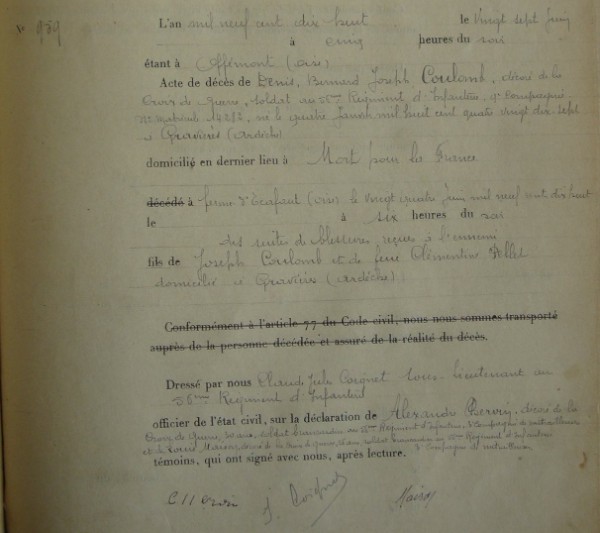 N° 989
L'an mil neuf cent dix huit le vingt sept juin
à cinq heures du soir
étant à Offémont (Oise)
Acte de décès de Denis, Bernard Joseph Coulomb, décoré de la
Croix de Guerre, soldat au 56ème Régiment d'Infanterie, 9e Compagnie
né le quatre janvier mil huit cent quatre vingt dix sept
à Gravières (Ardèche)
domicilié en dernier lieu à Mort pour la France
décédé à ferme d'Ecafaut (Oise) le vingt quatre juin mil neuf cent dix huit
le à six heures du soir
des suites de blessures reçues à l'ennemi
fils de Joseph Coulomb et de feue Clémentine
domicilié à Gravières (Ardèche)
Conformément à l'article 77 du Code civil, nous nous sommes transporté
auprès de la personne décédée et assuré de la réalité du décès.
Dressé par nous Claude Jules Coignet sous-lieutenant au
56ème Régiment d'Infanterie
officier de l'état civil, sur la déclaration de Alexandre décoré de la
Croix de Guerre, soldat brancardier au 56ème Régiment d'Infanterie, Compagnie de mitrailleuses
et de Louis décoré de la Croix de guerre, soldat brancardier au 56ème Régiment d'Infanterie
Compagnie de mitrailleuses
témoins, qui ont signé avec nous, après lecture.
J. Coignet